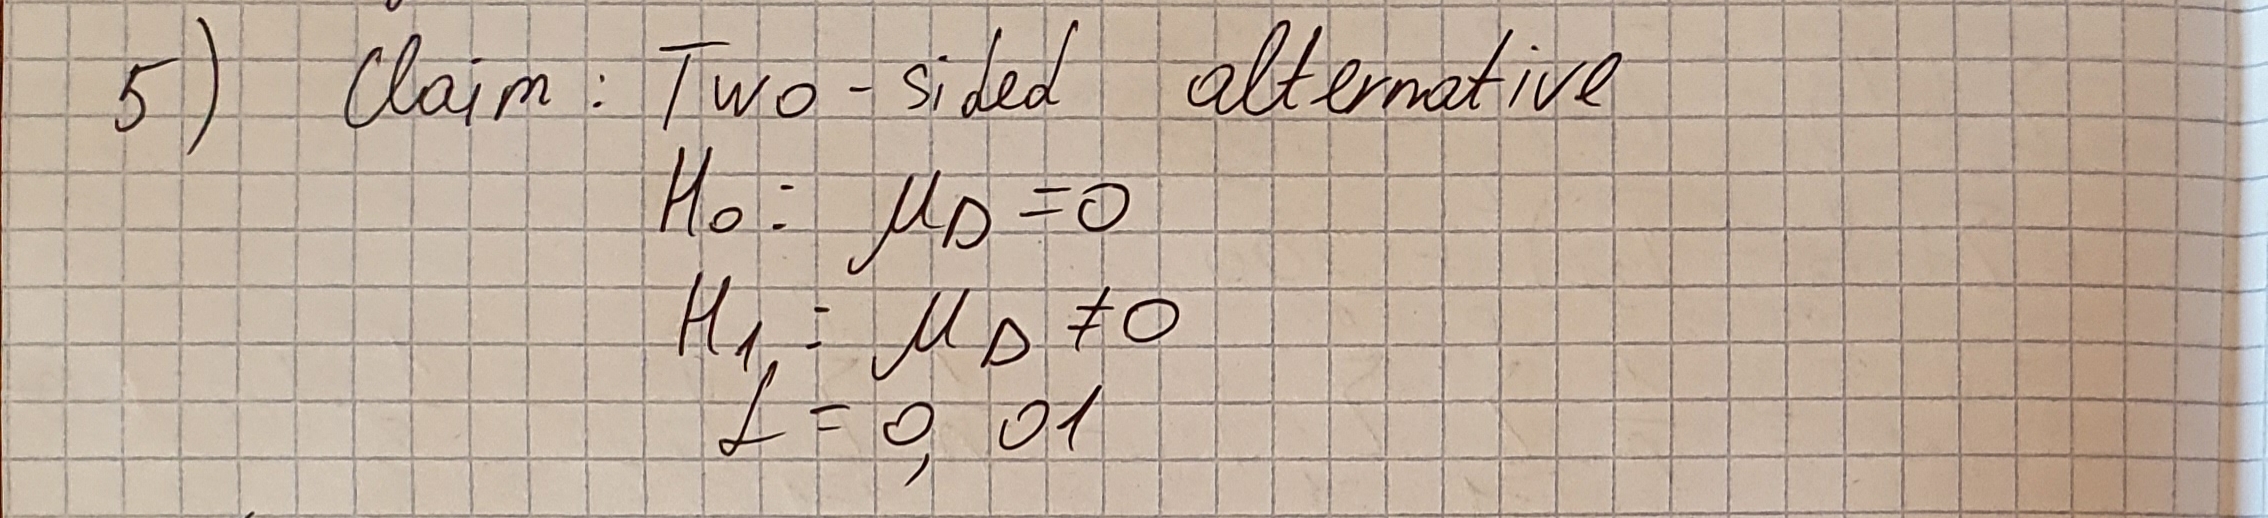 5) Claim: Two-sided alternative
H₀: μ_D = 0
H₁: μ_D ≠ 0
α = 0,01